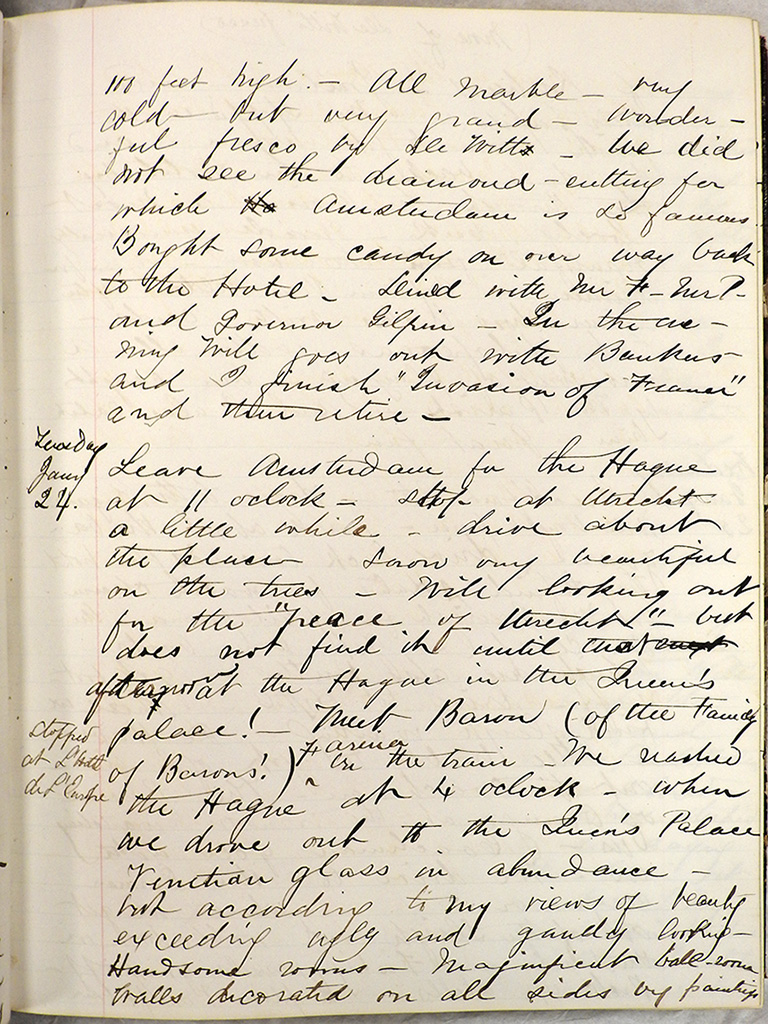 100 feet high. – All marble – very
cold – but very grand – Wonder-
ful fresco by De Witts – We did
not see the diamond-cutting for
which Amsterdam is so famous
Bought some candy on our way back
to the Hotel – Dined with Mr F– Mr P–
and Governor Gilpin – In the eve-
ning Will goes out with Bankers
and I finish "Invasion of France"
and then retire –
Tuesday
Jany
24.
Leave Amsterdam for the Hague
at 11 oclock – stop at Utrecht
a little while – drive about
the place – snow very beautiful
on the trees – Will looking out
for the "peace of Utrecht" – but
does not find it until that
afternoon at the Hague in the Queen's
palace! – Meet Baron (of the Family
stopped
at L'Hotel
de L'Europe
of Barons!) Farina in the train – We reached
the Hague at 4 oclock – when
we drove out to the Queen's Palace
Venetian glass in abundance –
but according to my views of beauty
exceeding ugly and gaudy looking –
Handsome rooms – Magnificent ball-room
Walls decorated on all sides by paintings